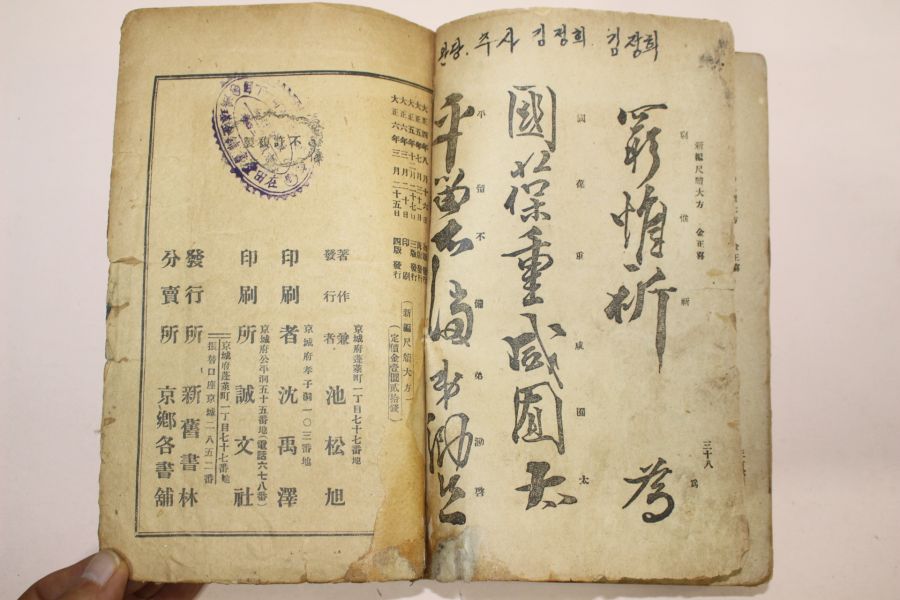 주사 김정희 김장희
新編尺牘大方
三十八
惟祈 為
惟祈 為
國葆重咸囿太
國葆重咸囿太
平留不備弟泐啓
平留不備弟泐
大正六年三月二十日 印刷
大正六年三月二十五日 四版發行
(新編尺牘大方)
(定價金壹圓貳拾錢)
京城府蓬萊町一丁目七十七番地
著作兼發行者 池松旭
京城府孝子洞一〇三番地
印刷者 沈禹澤
京城府公平洞五十五番地(電話六七八番)
印刷所 誠文社
京城府蓬萊町一丁目七十七番地
發行所 新舊書林
振替口座京城二八五二番
分賣所 京鄉各書舖
不許複製